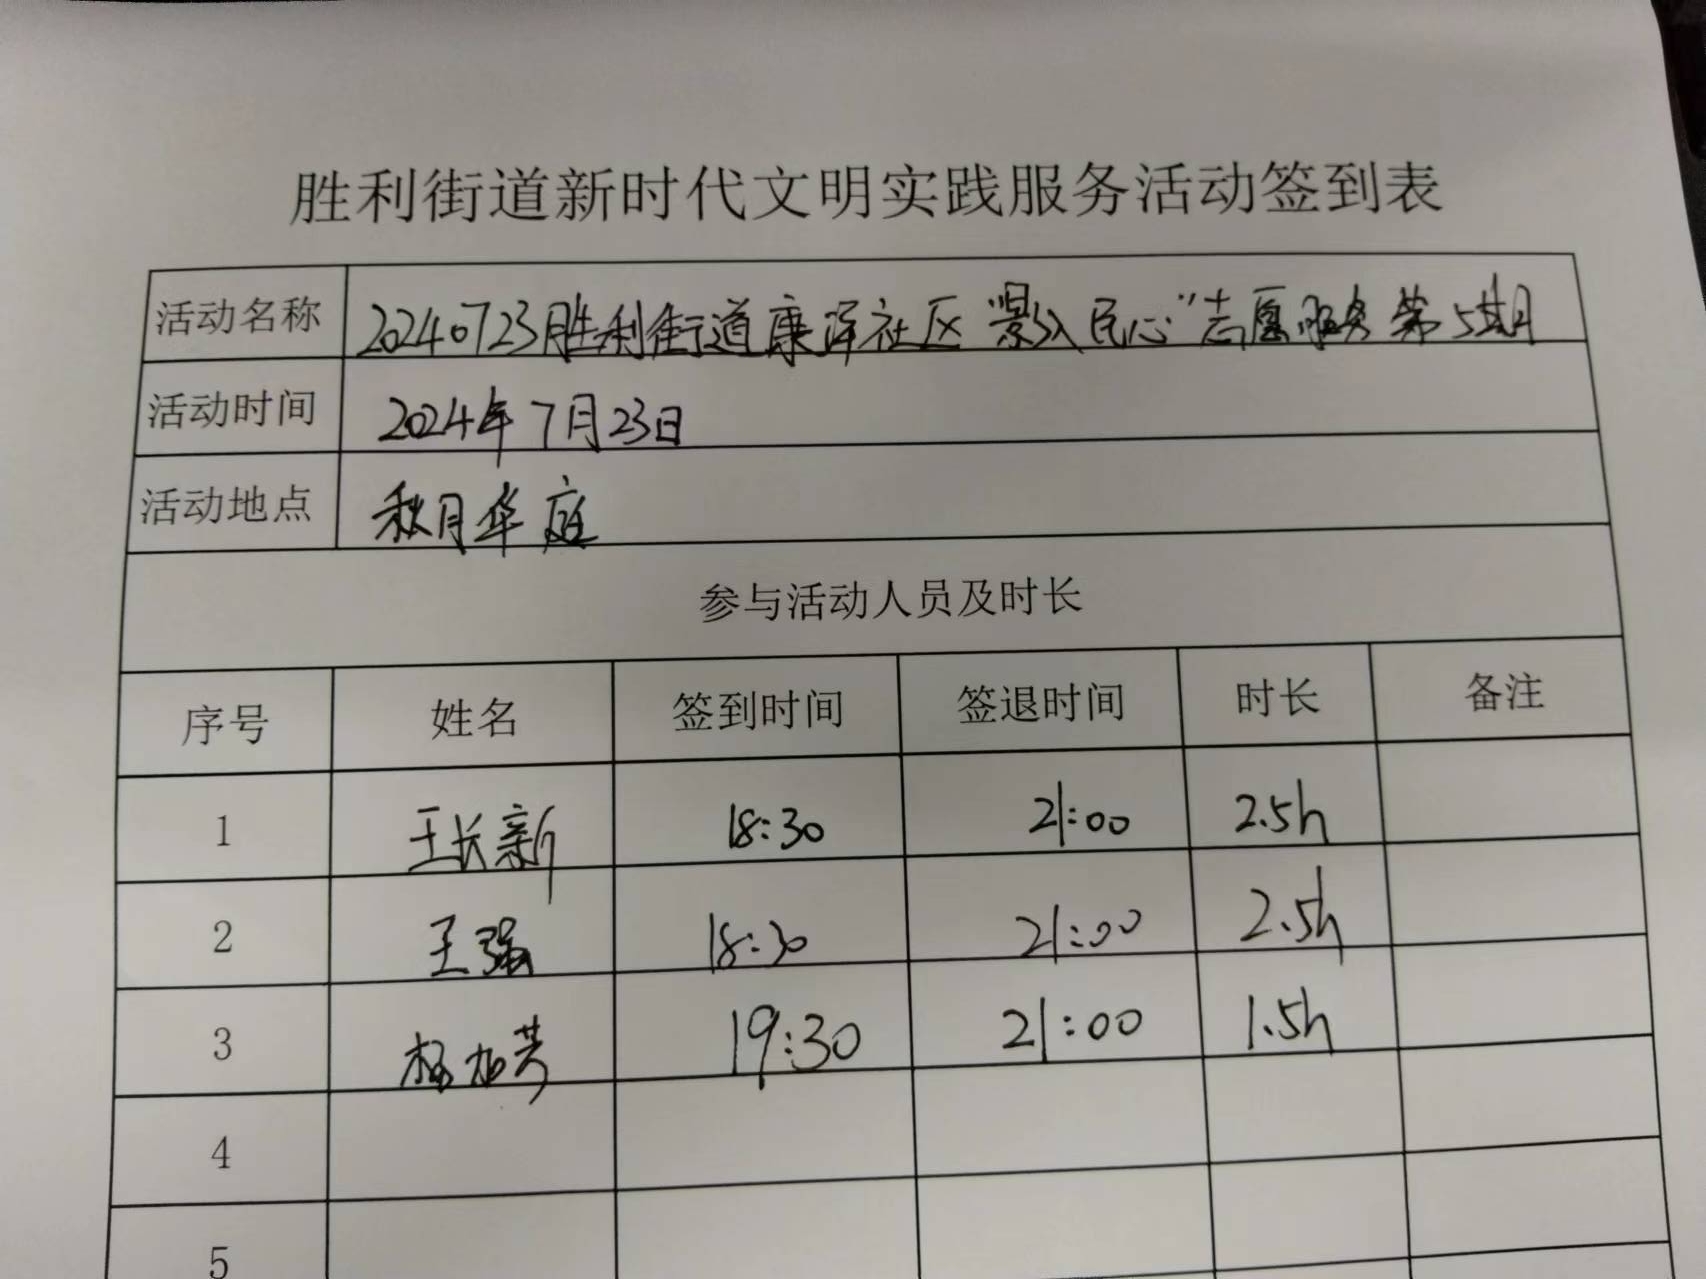 胜利街道新时代文明实践服务活动签到表
活动名称 20240723胜利街道康泽社区"景入民心"志愿服务第5期
活动时间 2024年7月23日
活动地点 秋月华庭
参与活动人员及时长
序号 姓名 签到时间 签退时间 时长 备注
1 王长新 18:30 21:00 2.5h
2 王强 18:30 21:00 2.5h
3 杨旭芳 19:30 21:00 1.5h
4
5